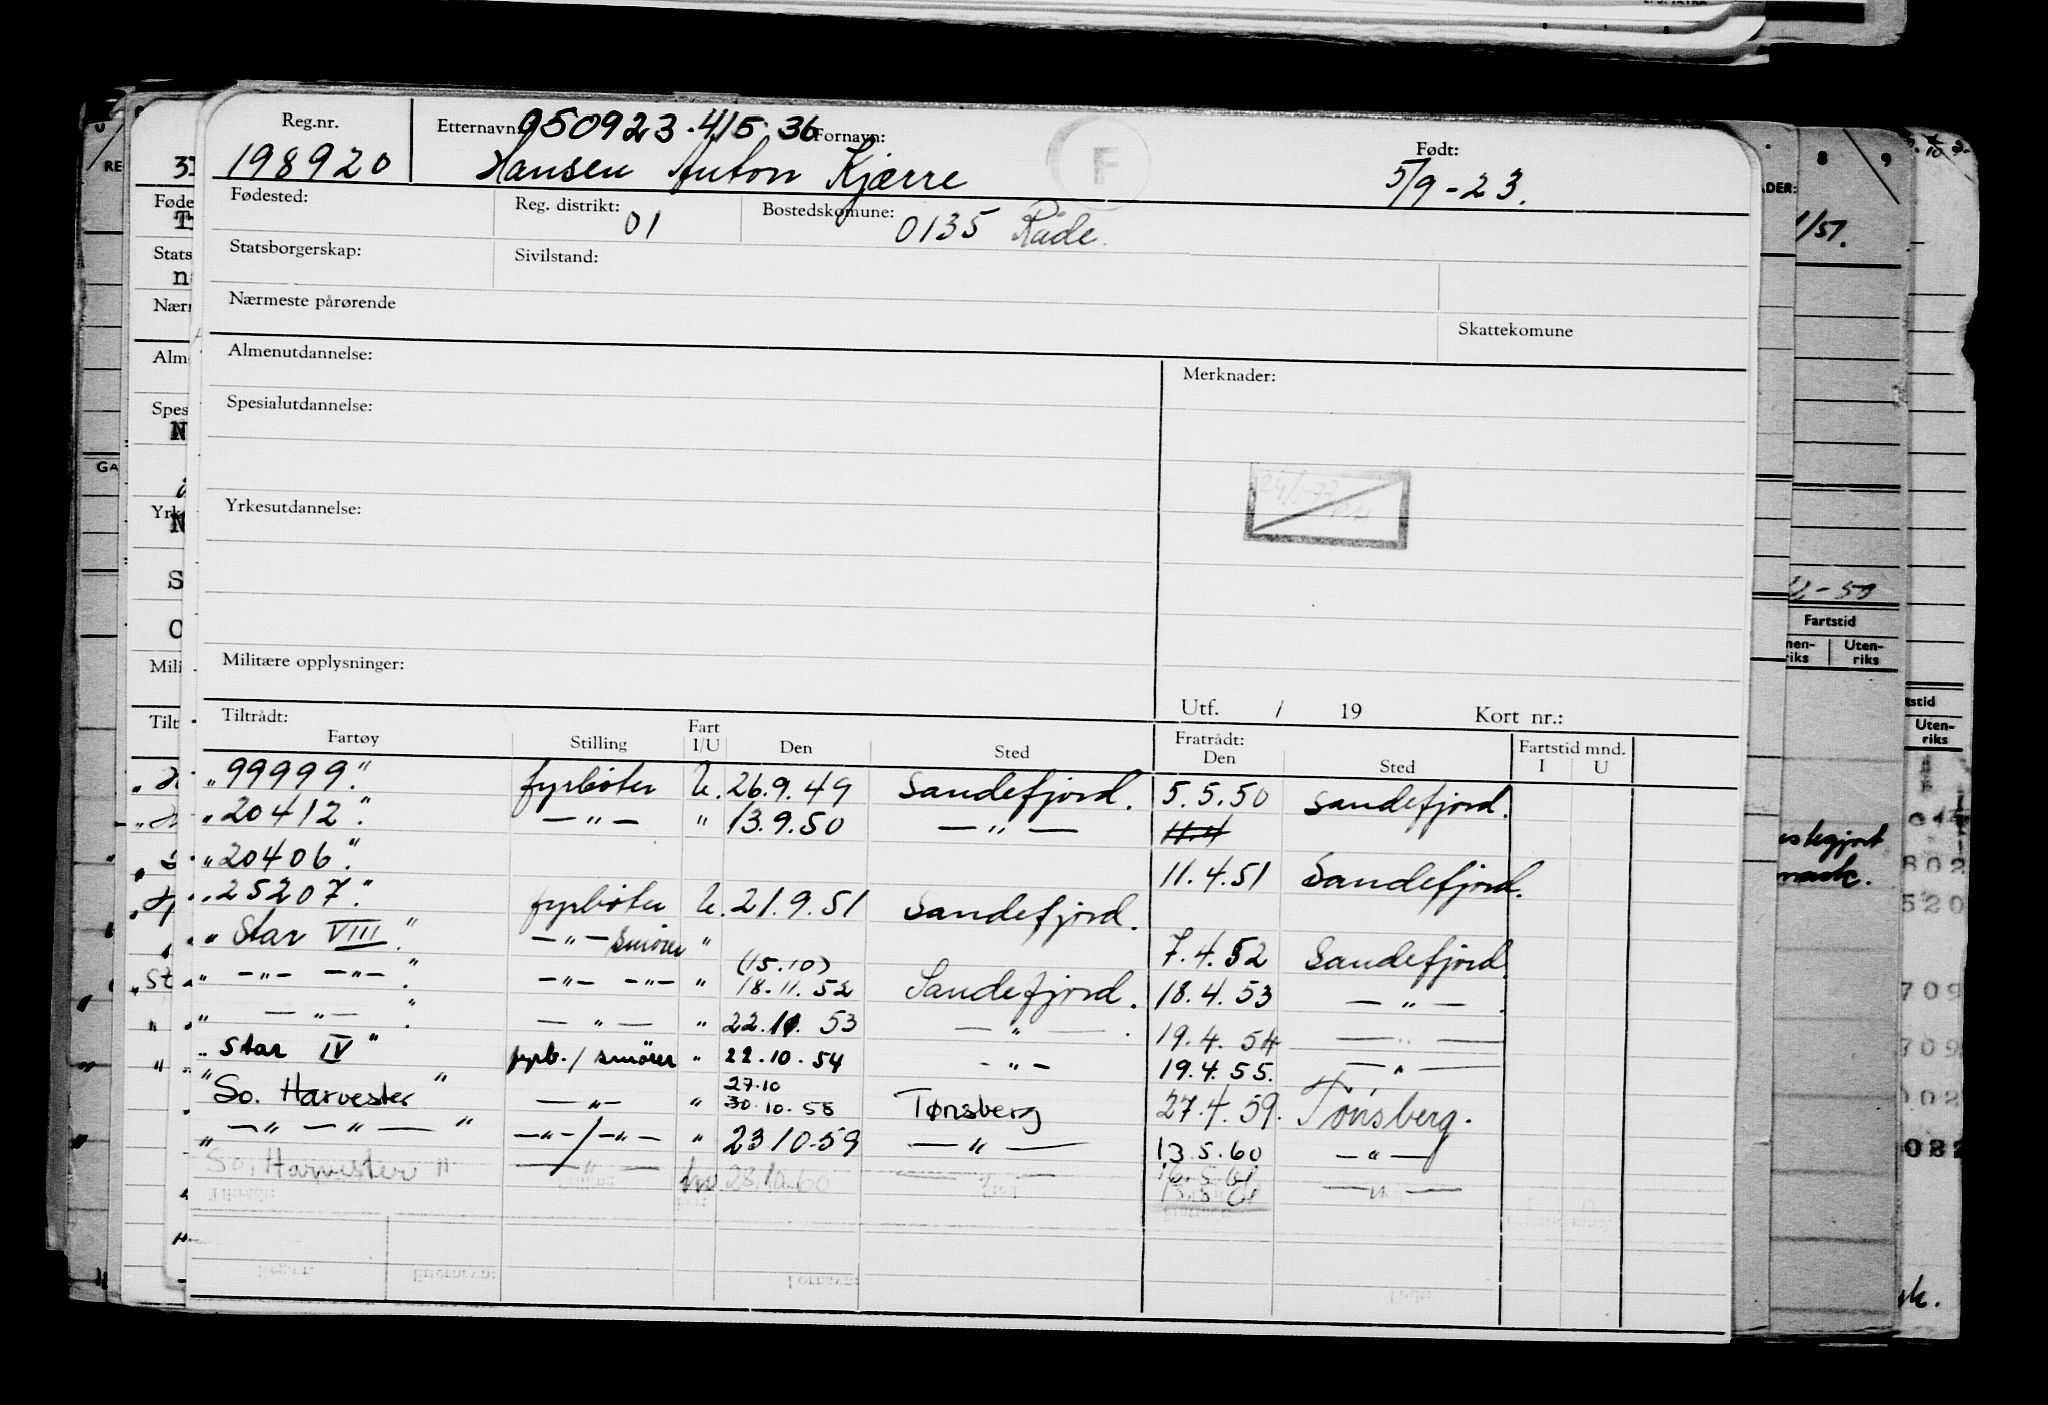 Reg.nr. Etternavn: 050923.415.36 Fornavn: Født:
198920 Hansen Anton Kjærre 5/9-23.
F
Fødested: Reg. distrikt: 01 Bostedskomune: 0135 Råde.
Statsborgerskap: Sivilstand:
Nærmeste pårørende
Skattekomune
Almenutdannelse: Merknader:
Spesialutdannelse:
Yrkesutdannelse:
Militære opplysninger:
Utf. / 19 Kort nr.:
Tiltrådt: Fart Fratrådt: Fartstid mnd.
Fartøy Stilling I/U Den Sted Den Sted I U
„99999" fyrbøter U. 26.9.49 Sandefjord. 5.5.50 Sandefjord.
„20412" —„— " 13.9.50 —„— 11.4
„20406" 11.4.51 Sandefjord.
„25207" fyrbøter U. 21.9.51 Sandefjord.
„Star VIII" —„— Smører " 7.4.52 Sandefjord
„ —„— —„—" —„— —„— " (15.10) 18.11.52 Sandefjord. 18.4.53 —„—
„ —„— " —„— " 22.10.53 —„— 19.4.54 —„—
„Star IV" fyrb./smører " 22.10.54 —„— 19.4.55. —„—
"So. Harvester" —„— " 27.10 30.10.58 Tønsberg 27.4.59. Tønsberg.
„ —„— —„— " —„—/—„— " 23.10.59 —„— 13.5.60 —„—
So. Harvester " —„— 28.10.60 —— 16.5.61 —„—
13.5.61
Fartstid
Uten-
riks
Uten-
riks